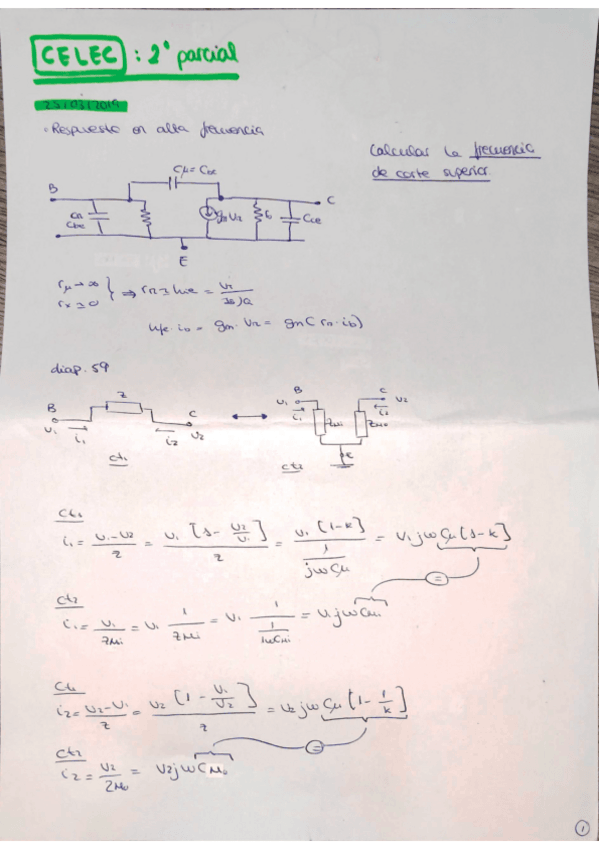 CELEC : 2° parcial
25/03/2019
· Respuesta en alta frecuencia
Calcular la frecuencia
de corte superior.
Cμ = Cbc
B
C
Cπ
Cbe
gmVπ
ro
Cce
E
rμ → ∞
rx ≃ 0 } ⇒ rπ ≃ hie =
hfe · ib = gm · Vπ = gm (rπ · ib)
diap. 59
Z
B
C
V1
i1
i2
V2
ct1
B
C
V2
V1
i1
i2
Zμi
Zμo
E
ct2
ct1
i1 = V1-V2/Z = V1 [1- V2/V1]/Z = V1 [1-k]/(1/jωCμ) = V1 jω Cμ [1-k]
=
ct2
i1 = V1/Zμi = V1 1/Zμi = V1 1/(1/jωCμi) = V1 jω Cμi
ct1
i2 = V2-V1/Z = V2 [1 - V1/V2]/Z = V2 jω Cμ [1- 1/k]
=
ct2
i2 = V2/Zμo = V2 jω Cμo
1